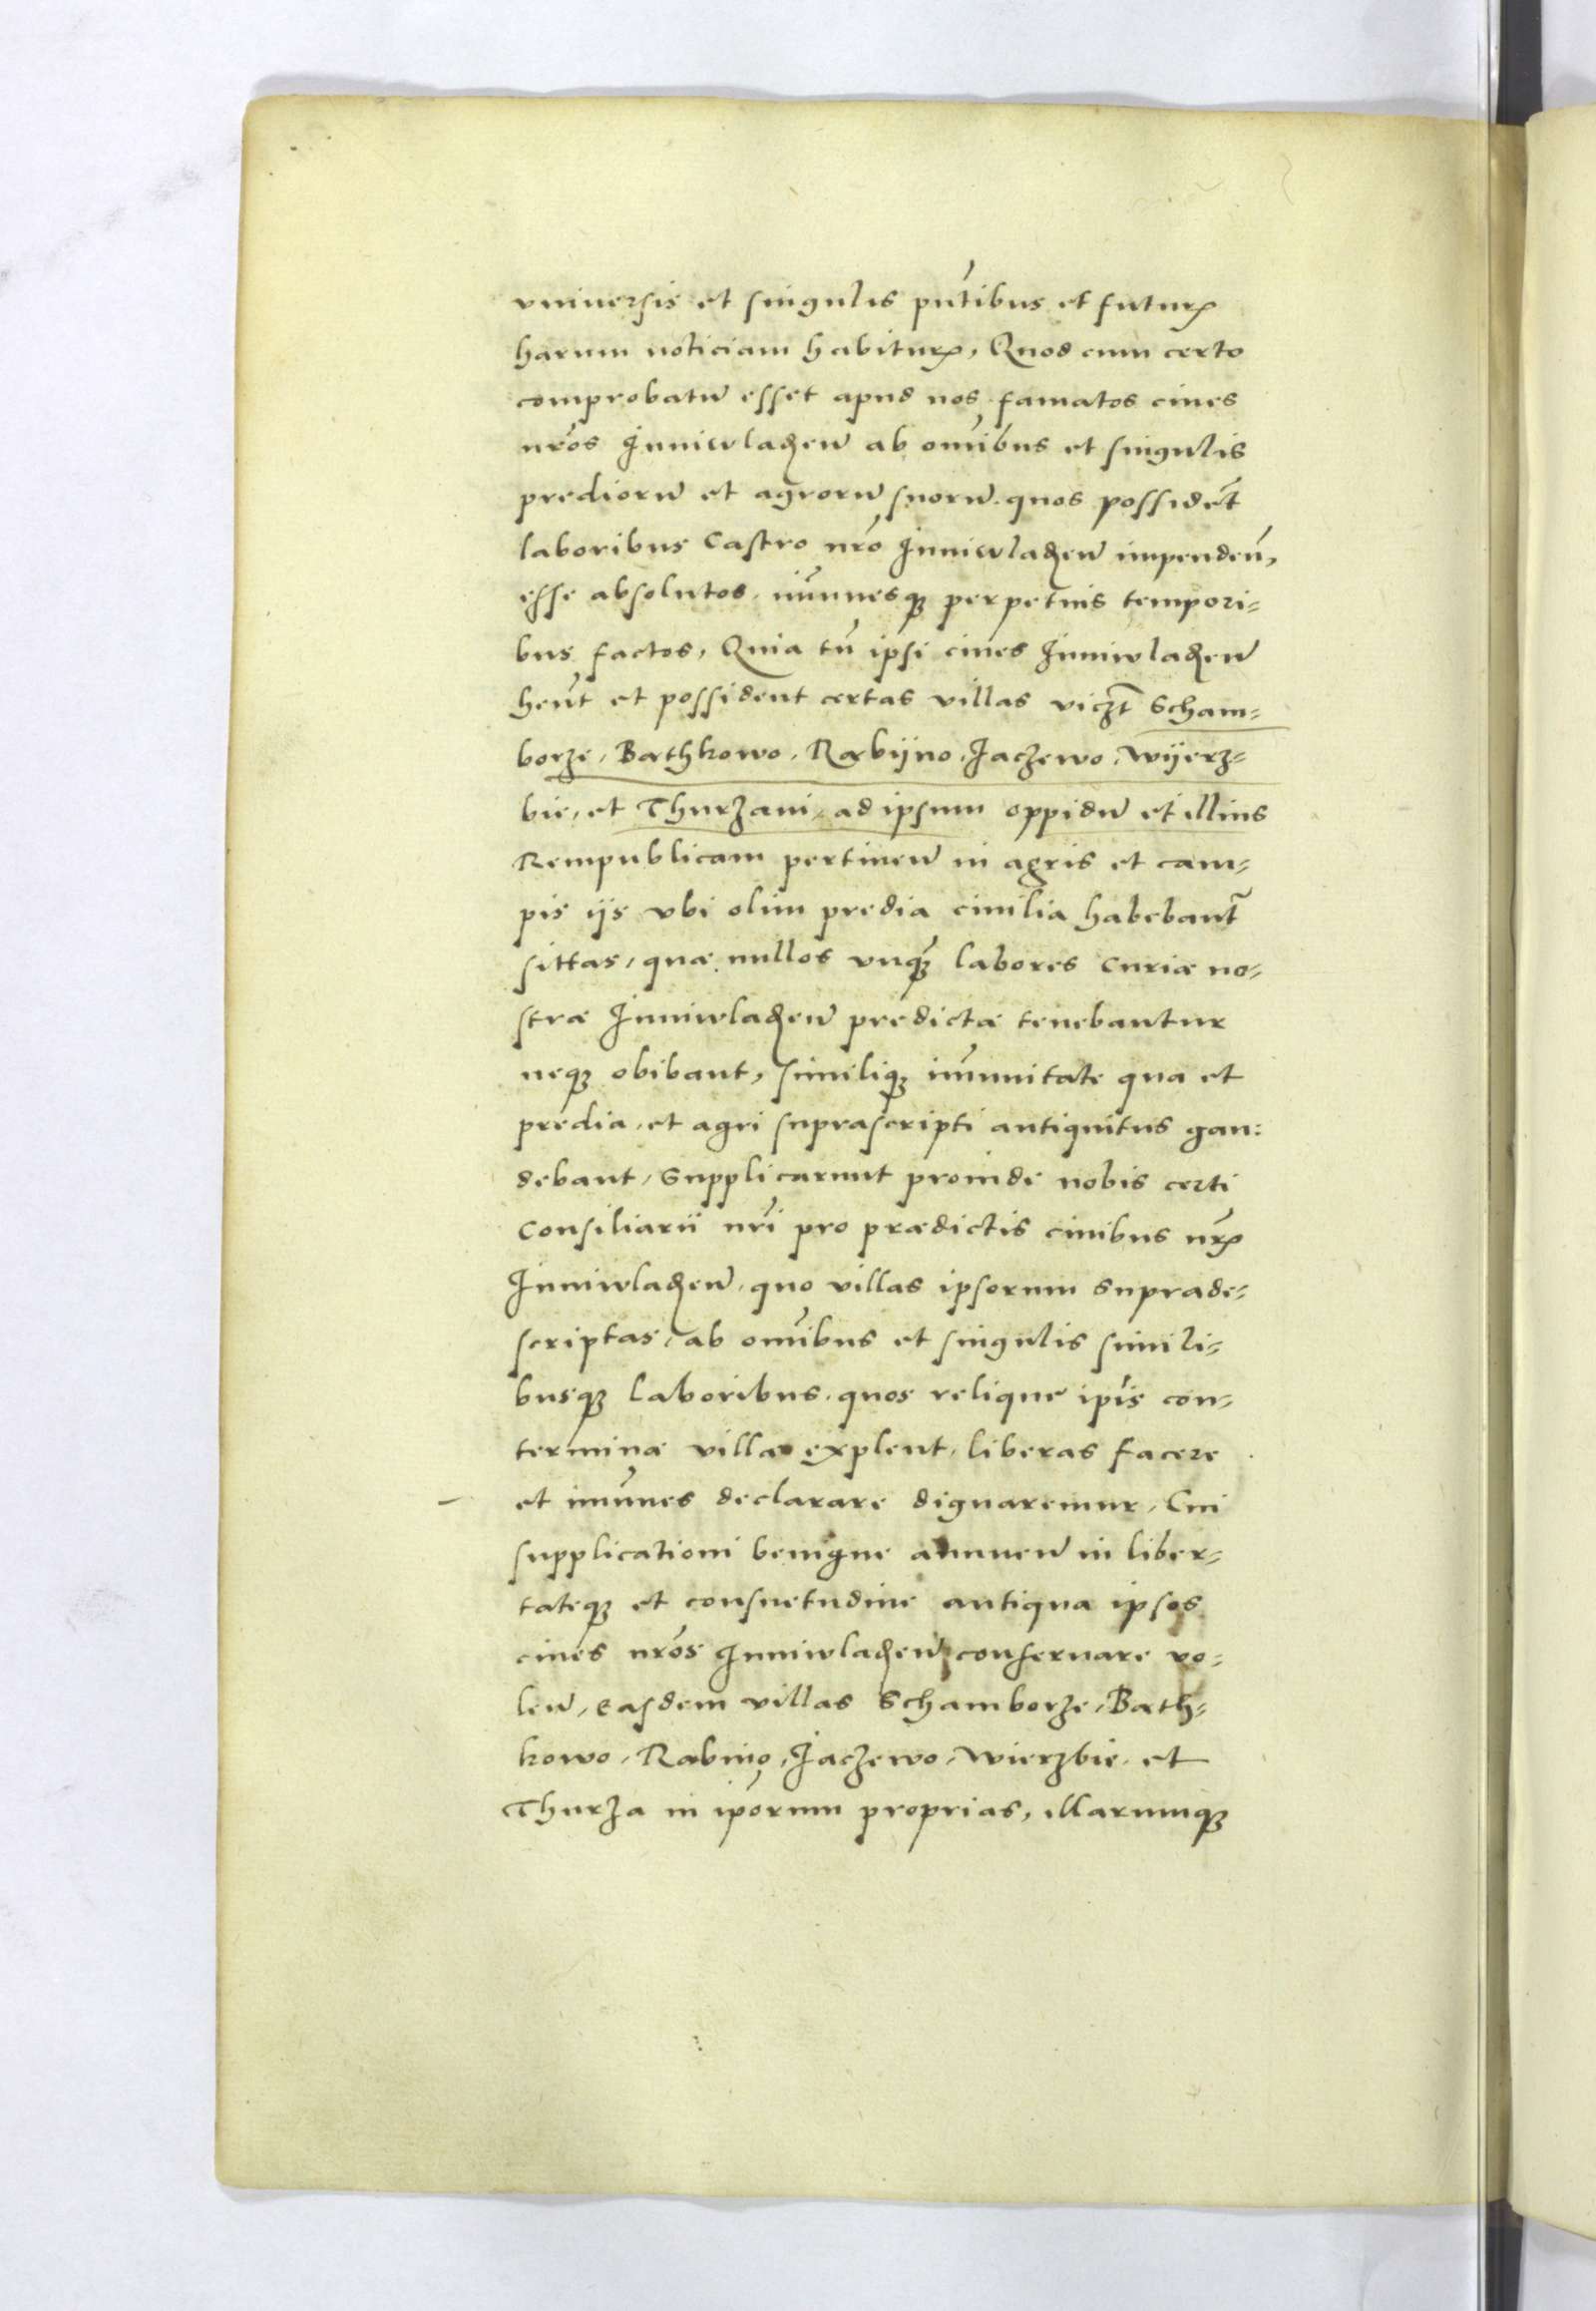 vniuersis et singulis pn̄tibus et futurꝭ
harum noticiam habiturꝭ, Quod cum certo
comprobatū esset apud nos famatos ciues
nr̄os Juniwladzeū ab om̄ibus et singulis
prediorū et agrorū suorū quos possidēt
laboribus Castro nr̄o Juniwladzeū impendeū,
esse absolutos, im̄unesqꝫ perpetuis tempori=
bus factos, Quia tn̄ ipsi ciues Juniwladzeū
hen̄t et possident certas villas viczt̄ Scham=
borze, Bathkowo, Rabijno, Jaczewo, Wijerz=
bie, et Thurzani, ad ipsum oppidū et illius
Rempublicam pertineū in agris et cam=
pis ijs vbi olim predia ciuilia habebant̄
sittas, quæ nullos vnqꝫ labores Curiæ no=
stræ Juniwladzeū predictæ tenebantur
neqꝫ obibant, similiqꝫ im̄unitate qua et
predia, et agri suprascripti antiquitus gau:
debant, Supplicarunt proinde nobis certi
Consiliarii nr̄i pro prædictis ciuibus nr̄ꝭ
Juniwladzeū, quo villas ipsorum suprade=
scriptas, ab om̄ibus et singulis simili=
busqꝫ laboribus, quos relique ip̄is con=
terminæ villæ explent, liberas facere
et im̄unes declarare dignaremur, Cui
supplicationi benigne annueū in liber=
tateqꝫ et consuetudine antiqua ipsos
ciues nr̄os Juniwladzeū conseruare vo=
leū, easdem villas Schamborze, Bath=
kowo, Rabino, Jaczewo, Wierzbie, et
Thurza in ip̄orum proprias, illarumqꝫ